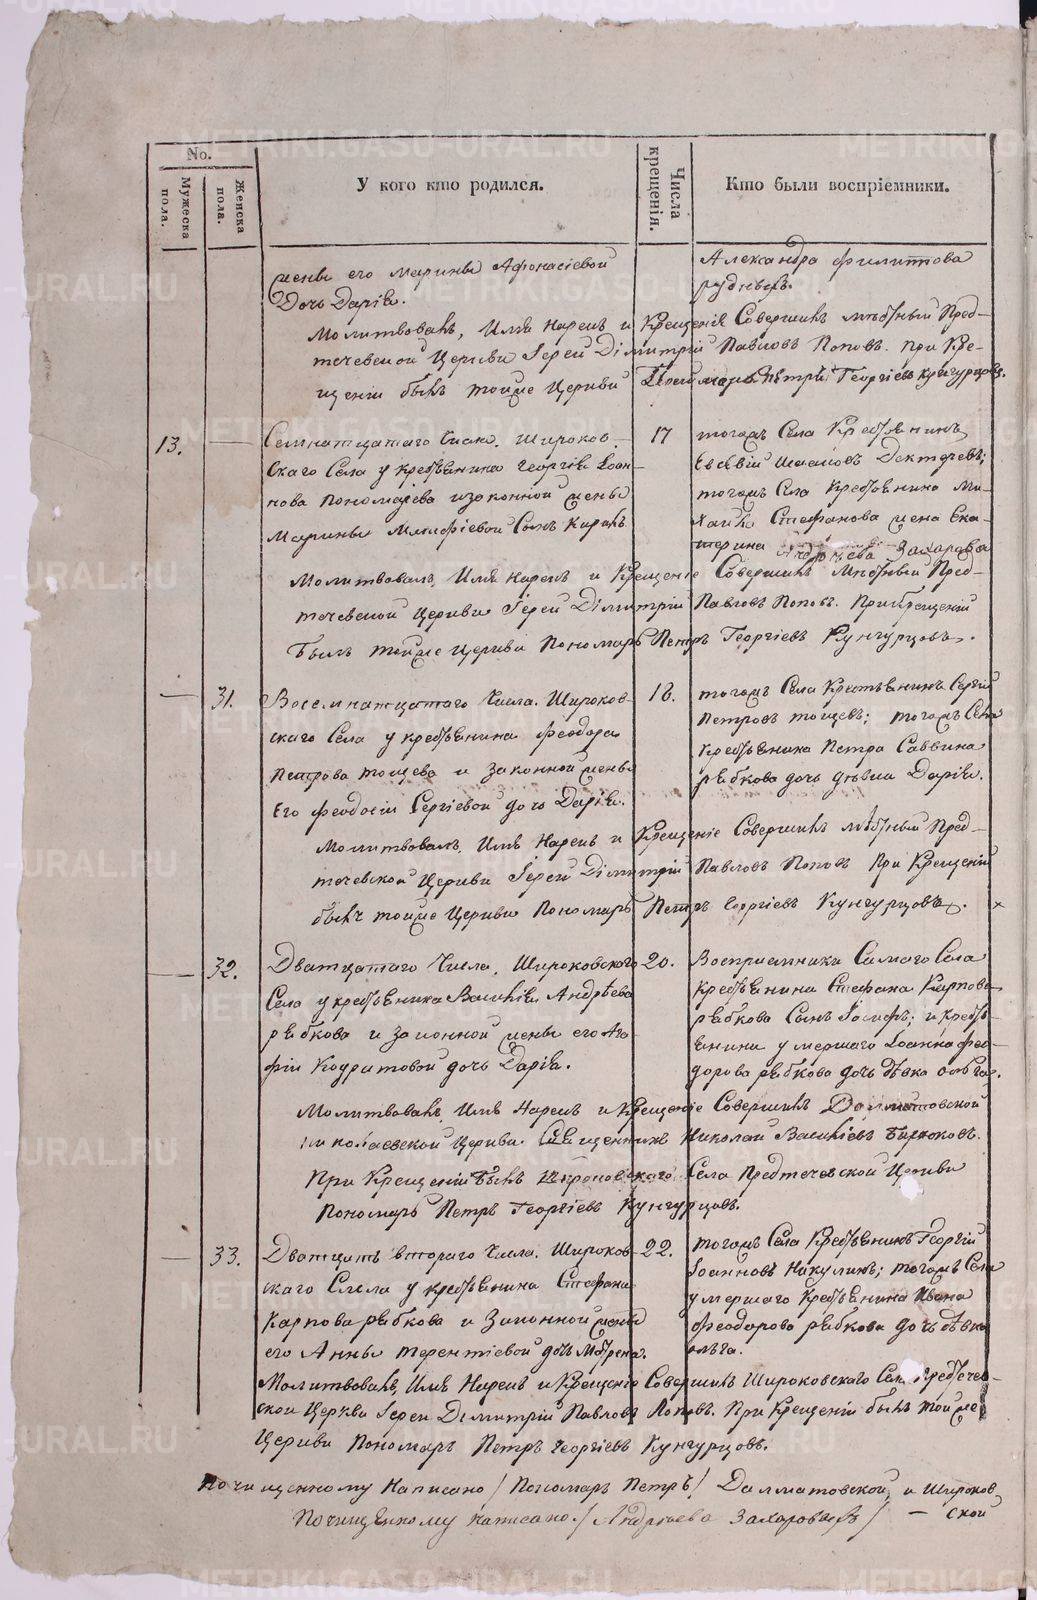 METRIKI.GASO-URAL.RU
No.
Мужеска пола.
Женска пола.
У кого кто родился.
Числа крещенія.
Кто были воспріемники.
жены его Марины Афонасіевой
Дочь Дарія.
Александра Филиппова
Молитвовалъ, Имя Нарекъ и Крещеніе Совершилъ мѣстный Пред-
течевской Церкви Іерей Димитрій Павловъ Поповъ. При Кре-
щеніи былъ тойже Церкви Пономарь Петръ Георгіевъ Кунгурцовъ.
13.
Семнатцатаго Числа. Широков-
скаго Села у крестьянина Георгія Іоан-
нова Пономарева и законной жены
Марины Сынъ Карпъ
17
тогожъ Села Крестьянинъ
Евсевій
тогожъ Села Крестьянина Ми-
хаила Стефанова жена Ека-
терина Андреева Захарова
Молитвовалъ, Имя Нарекъ и Крещеніе Совершилъ Мѣстный Пред-
течевской Церкви Іерей Димитрій Павловъ Поповъ. При Крещеніи
Былъ тойже Церкви Пономарь Петръ Георгіевъ Кунгурцовъ.
31.
Восемнатцатаго Числа. Широков-
скаго Села у крестьянина Феодора
Петрова Тощева и Законной жены
Его Феодосіи Сергіевой дочь Дарія.
18.
тогожъ Села Крестьянинъ Сергій
Петровъ Тощевъ; тогожъ Села
Крестьянина Петра Саввина
Рябкова дочь девка Дарія.
Молитвовалъ, Имя Нарекъ и Крещеніе Совершилъ мѣстный Пред-
течевской Церкви Іерей Димитрій Павловъ Поповъ При Крещеніи
былъ тойже Церкви Пономарь Петръ Георгіевъ Кунгурцовъ.
32.
Дватцатаго Числа, Широковскаго
Села у крестьянина Василія Андрѣева
Рябкова и Законной жены его Ага-
фіи Кодратовой дочь Дарія.
20.
Воспріемники Самаго Села
Крестьянина Стефана Карпова
Рябкова Сынъ Іосифъ; и крестья-
янина умершаго Іоанна Фео-
дорова Рябкова дочь дѣвка Ольга.
Молитвовалъ Имя Нарекъ и Крещеніе Совершилъ Далматовской
Николаевской Церкви Священникъ Николай Василіевъ Бирюковъ.
При Крещеніи Былъ Широковскаго Села Предтечевской Церкви
Пономарь Петръ Георгіевъ Кунгурцовъ.
33.
Дватцать втораго Числа. Широков-
скаго Села у крестьянина Стефана
Карпова Рябкова и Законной жены
его Анны Терентіевой дочь Матрена.
22.
тогожъ Села Крестьянинъ Георгій
Іоанновъ Никулинъ; тогожъ Села
умершаго Крестьянина Ивана
Феодорова Рябкова дочь дѣвка
Ольга.
Молитвовалъ, Имя Нарекъ и Крещеніе Совершилъ Широковскаго Села Предтечев-
ской Церкви Іерей Димитрій Павловъ Поповъ. При Крещеніи былъ тойже
Церкви Пономарь Петръ Георгіевъ Кунгурцовъ.
По чищенному Написано / Пономарь Петръ / Далматовской, и Широков
По чищенному написано. / Андреева Захарова / — ской